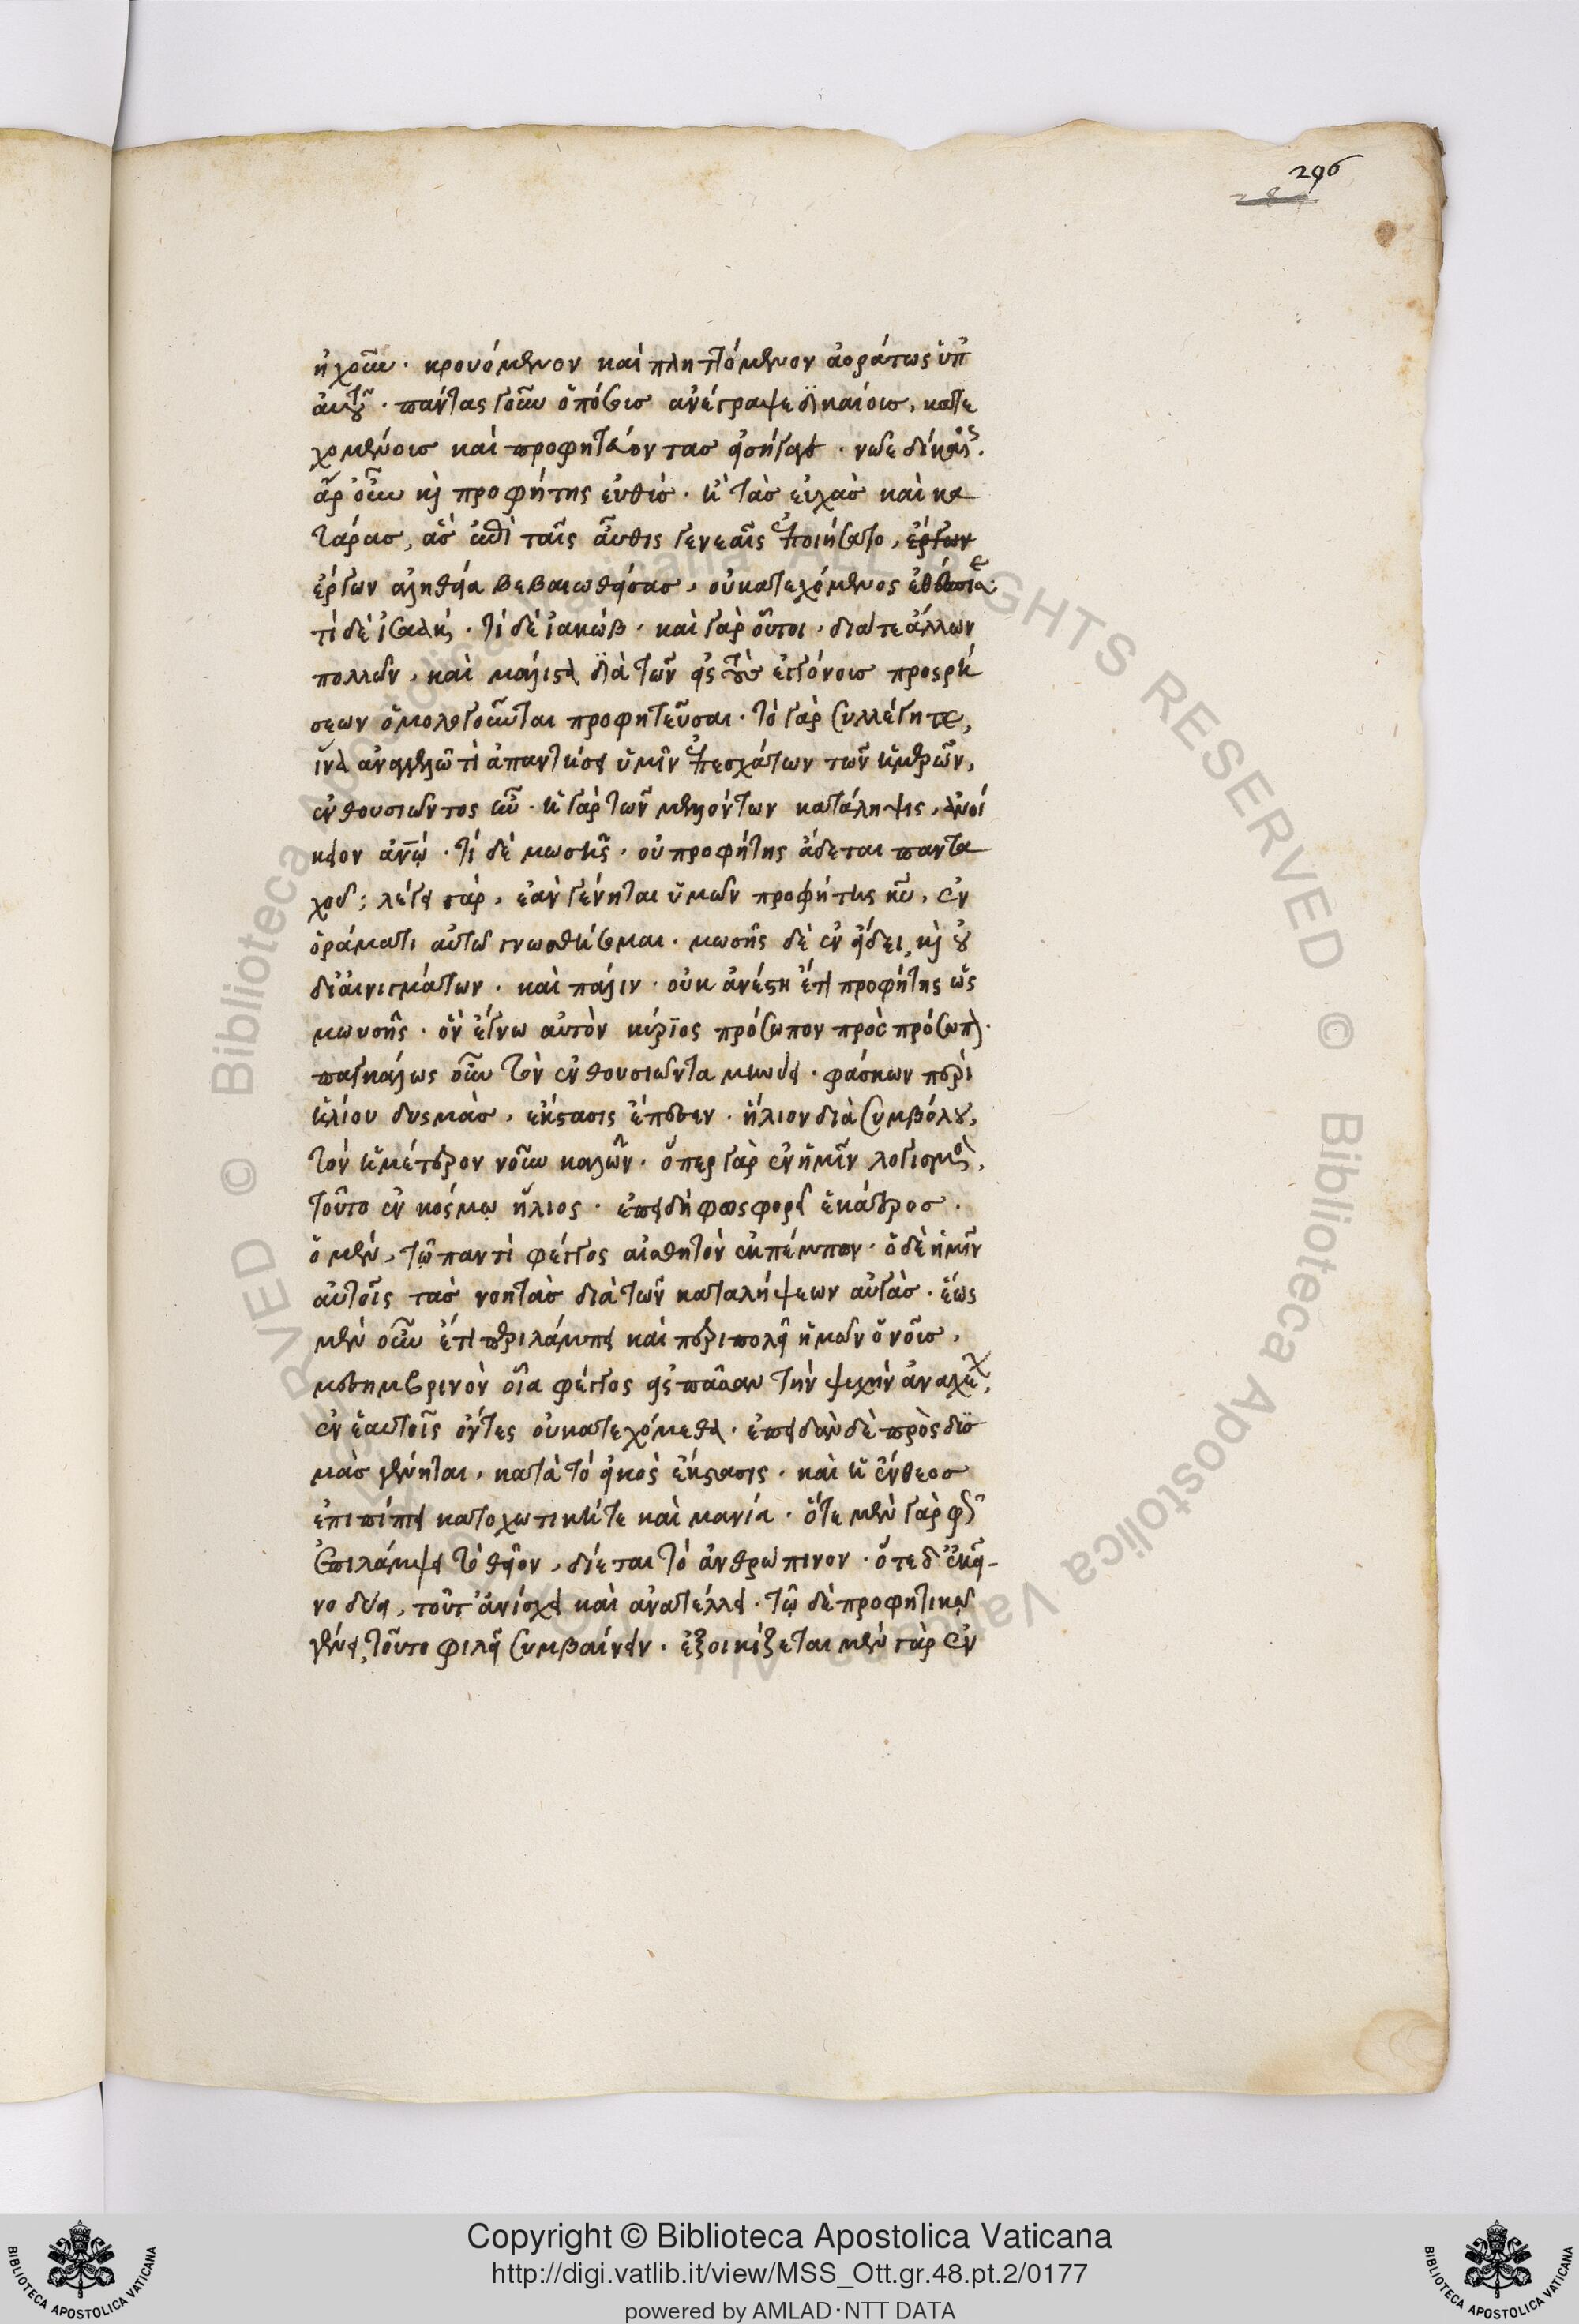 296
ἠχοῦν· κρουόμενον καὶ πληττόμενον ἀοράτως ὑπ'
αὐτοῦ· πάντας γοῦν ὁπόσους ἀνέγραψε δικαίους, κατε
χομένους καὶ προφητεύοντας εἰσήγαγε· νῶε δίκαιος·
ἆρ' οὖν καὶ προφήτης εὐθύς· ἢ τὰς εὐχὰς καὶ κα
τάρας, ἃς ἐπὶ ταῖς αὖθις γενεαῖς ἐποιήσατο,
ἔργων ἀληθεία βεβαιωθείσας, οὐ κατεχόμενος ἐθέσπισε·
τί δὲ ἰσαάκ· τί δὲ ἰακώβ· καὶ γὰρ οὗτοι, διά τε ἄλλων
πολλῶν, καὶ μάλιστα διὰ τῶν εἰς τοὺς ἐκγόνους προσρή
σεων ὁμολογοῦνται προφητεῦσαι· τὸ γὰρ συλλέγητε,
ἵνα ἀναγγελῶ τί ἀπαντήσει ὑμῖν ἐπ' ἐσχάτων τῶν ἡμερῶν,
ἐνθουσιῶντος ἦν· ἡ γὰρ τῶν μελλόντων κατάληψις, ἀνοί
κειον ἀνθρώπῳ· τί δὲ μωσῆς· οὐ προφήτης ἄδεται πάντα
χοῦ; λέγει γάρ, ἐὰν γένηται ὑμῶν προφήτης κυρίου, ἐν
ὁράματι αὐτῷ γνωσθήσομαι· μωσῆς δὲ ἐν εἴδει, καὶ οὐ
δι' αἰνιγμάτων· καὶ πάλιν· οὐκ ἀνέστη ἔτι προφήτης ὡς
μωυσῆς· ὃν ἔγνω αὐτὸν κύριος πρόσωπον πρὸς πρόσωπον·
παγκάλως οὖν τὸν ἐνθουσιῶντα μηνύει· φάσκων περὶ
ἡλίου δυσμάς, ἔκστασις ἐπέπεσεν· ἥλιον διὰ συμβόλου,
τὸν ἡμέτερον νοῦν καλῶν· ὅπερ γὰρ ἐν ἡμῖν λογισμὸς,
τοῦτο ἐν κόσμῳ ἥλιος· ἐπειδὴ φωσφορεῖ ἑκάτερος·
ὁ μὲν, τῷ παντὶ φέγγος αἰσθητὸν ἐκπέμπων· ὁ δὲ ἡμῖν
αὐτοῖς τὰς νοητὰς διὰ τῶν καταλήψεων αὐγάς· ἕως
μὲν οὖν ἔτι περιλάμπει καὶ περιπολεῖ ἡμῶν ὁ νοῦς,
μεσημβρινὸν οἷα φέγγος εἰς πᾶσαν τὴν ψυχὴν ἀναχέων,
ἐν ἑαυτοῖς ὄντες οὐ κατεχόμεθα· ἐπειδὰν δὲ πρὸς δυσ
μὰς γένηται, κατὰ τὸ εἰκὸς ἔκστασις· καὶ ἡ ἔνθεος
ἐπιπίπτει κατοχωτική τε καὶ μανία· ὅτε μὲν γὰρ φῶς
ἐπιλάμψει τὸ θεῖον, δύεται τὸ ἀνθρώπινον· ὅτε δ' ἐκεῖ-
νο δύει, τοῦτ' ἀνίσχει καὶ ἀνατέλλει· τῷ δὲ προφητικῷ
γένει, τοῦτο φιλεῖ συμβαίνειν· ἐξοικίζεται μὲν γὰρ ἐν
Copyright © Biblioteca Apostolica Vaticana
http://digi.vatlib.it/view/MSS_Ott.gr.48.pt.2/0177
powered by AMLAD·NTT DATA